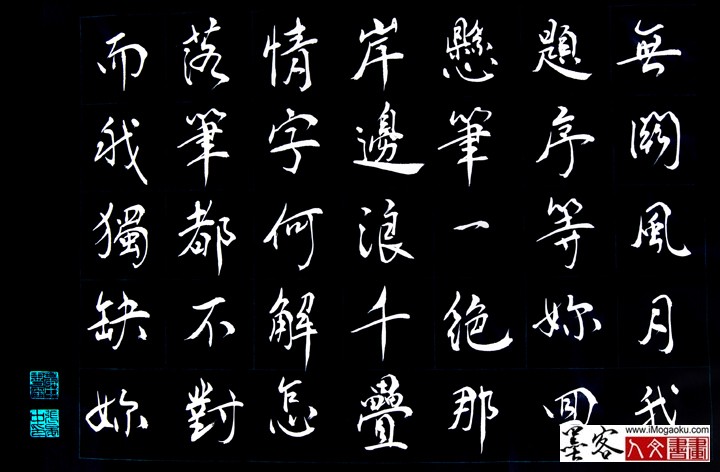 無關風月我
題序等妳回
懸筆一絕那
岸邊浪千疊
情字何解怎
落筆都不對
而我獨缺妳
www.iMogaoku.com
墨客
人文書畫